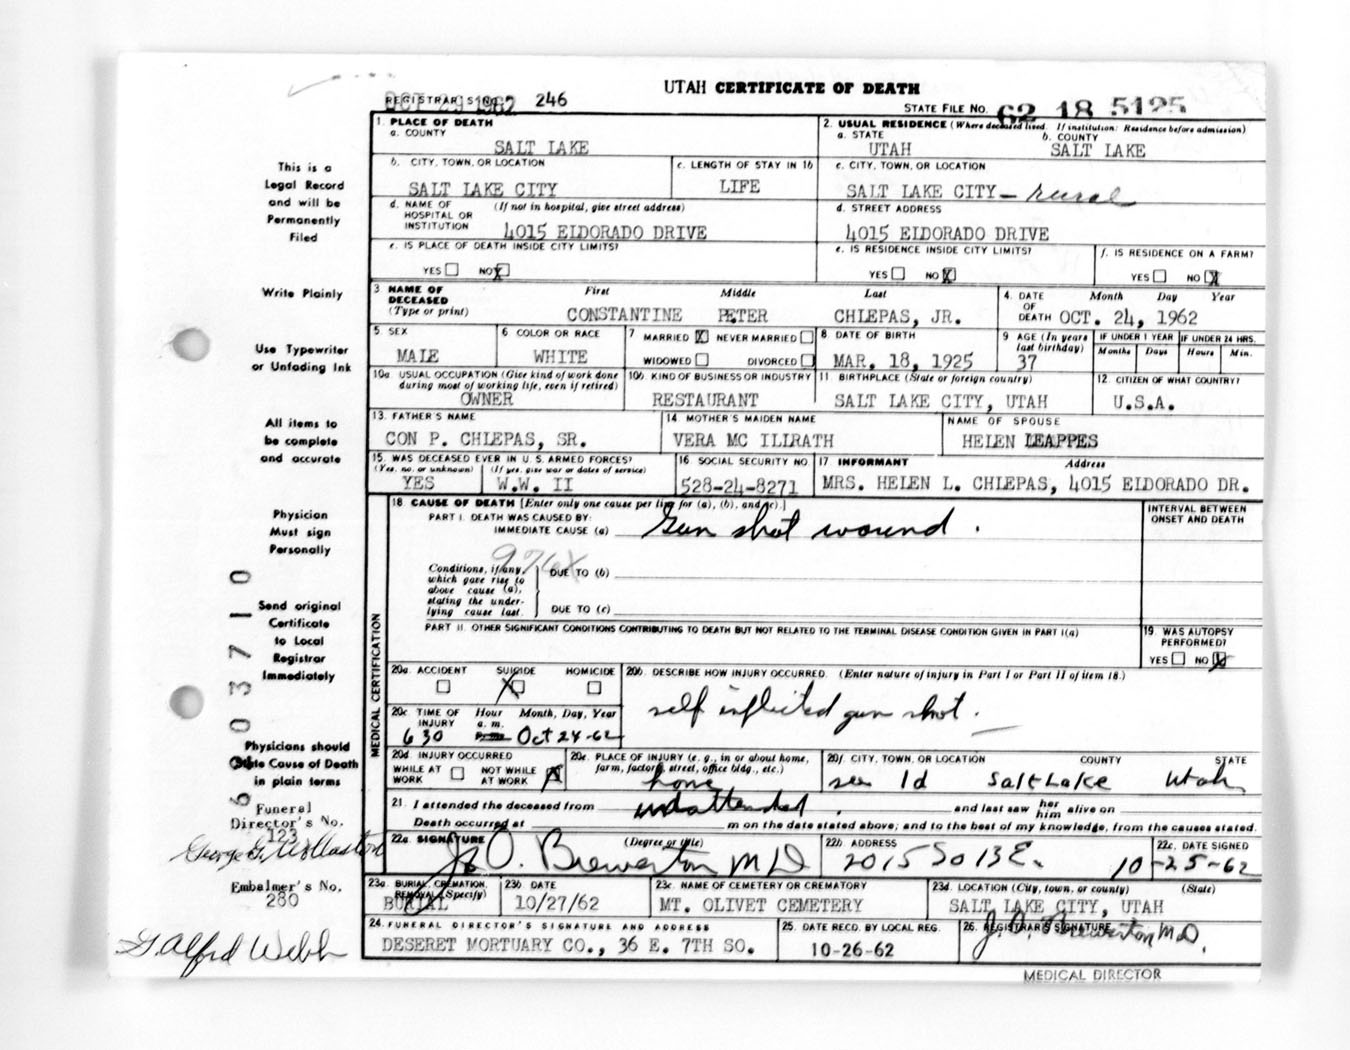 UTAH CERTIFICATE OF DEATH
OCT 29 1962
REGISTRAR'S NO. 246
STATE FILE NO. 62 18 5125
This is a
Legal Record
and will be
Permanently
Filed
Write Plainly
Use Typewriter
or Unfading Ink
All items to
be complete
and accurate
Physician
Must sign
Personally
Send original
Certificate
to Local
Registrar
Immediately
Physicians should
State Cause of Death
in plain terms
Funeral
Director's No.
123
George G. Wollaston
Embalmer's No.
280
G. Alfred Webb
03710
1. PLACE OF DEATH
a. COUNTY
SALT LAKE
2. USUAL RESIDENCE (Where deceased lived. If institution: Residence before admission)
a. STATE b. COUNTY
UTAH SALT LAKE
b. CITY, TOWN, OR LOCATION
SALT LAKE CITY
c. LENGTH OF STAY IN 1b
LIFE
c. CITY, TOWN, OR LOCATION
SALT LAKE CITY - rural
d. NAME OF HOSPITAL OR INSTITUTION (If not in hospital, give street address)
4015 ElDORADO DRIVE
d. STREET ADDRESS
4015 ElDORADO DRIVE
e. IS PLACE OF DEATH INSIDE CITY LIMITS?
YES NO X
e. IS RESIDENCE INSIDE CITY LIMITS?
YES NO X
f. IS RESIDENCE ON A FARM?
YES NO X
3 NAME OF DECEASED (Type or print)
First Middle Last
CONSTANTINE PETER CHLEPAS, JR.
4. DATE OF DEATH Month Day Year
OCT. 24, 1962
5. SEX
MALE
6 COLOR OR RACE
WHITE
7 MARRIED X NEVER MARRIED
WIDOWED DIVORCED
8 DATE OF BIRTH
MAR. 18, 1925
9 AGE (In years last birthday)
37
IF UNDER 1 YEAR IF UNDER 24 HRS.
Months Days Hours Min.
10a USUAL OCCUPATION (Give kind of work done during most of working life, even if retired)
OWNER
10b. KIND OF BUSINESS OR INDUSTRY
RESTAURANT
11 BIRTHPLACE (State or foreign country)
SALT LAKE CITY, UTAH
12. CITIZEN OF WHAT COUNTRY?
U.S.A.
13. FATHER'S NAME
CON P. CHLEPAS, SR.
14. MOTHER'S MAIDEN NAME
VERA MC ILLRATH
NAME OF SPOUSE
HELEN LEAPPES
15. WAS DECEASED EVER IN U.S. ARMED FORCES?
(Yes, no, or unknown) (If yes, give war or dates of service)
YES W.W. II
16 SOCIAL SECURITY NO.
528-24-8271
17. INFORMANT Address
MRS. HELEN L. CHLEPAS, 4015 ElDORADO DR.
MEDICAL CERTIFICATION
18 CAUSE OF DEATH [Enter only one cause per line for (a), (b), and (c).]
PART I. DEATH WAS CAUSED BY:
IMMEDIATE CAUSE (a) Gun shot wound.
INTERVAL BETWEEN ONSET AND DEATH
976X
Conditions, if any, which gave rise to above cause (a), stating the underlying cause last.
DUE TO (b)
DUE TO (c)
PART II. OTHER SIGNIFICANT CONDITIONS CONTRIBUTING TO DEATH BUT NOT RELATED TO THE TERMINAL DISEASE CONDITION GIVEN IN PART I(a)
19. WAS AUTOPSY PERFORMED?
YES NO X
20a. ACCIDENT SUICIDE HOMICIDE
X
20b. DESCRIBE HOW INJURY OCCURRED. (Enter nature of injury in Part I or Part II of item 18.)
self inflicted gun shot.
20c. TIME OF INJURY Hour Month, Day, Year
a. m.
630 Oct 24-62
20d. INJURY OCCURRED
WHILE AT WORK NOT WHILE AT WORK X
20e. PLACE OF INJURY (e. g., in or about home, farm, factory, street, office bldg., etc.)
home
20f. CITY, TOWN, OR LOCATION COUNTY STATE
see 1d Salt Lake Utah
21. I attended the deceased from undattended and last saw her him alive on
Death occurred at m on the date stated above; and to the best of my knowledge, from the causes stated.
22a. SIGNATURE (Degree or title)
J. O. Brewerton MD
22b. ADDRESS
2015 So 13 E.
22c. DATE SIGNED
10-25-62
23a. BURIAL, CREMATION, REMOVAL (Specify)
BURIAL
23b. DATE
10/27/62
23c. NAME OF CEMETERY OR CREMATORY
MT. OLIVET CEMETERY
23d. LOCATION (City, town, or county) (State)
SALT LAKE CITY, UTAH
24. FUNERAL DIRECTOR'S SIGNATURE AND ADDRESS
DESERET MORTUARY CO., 36 E. 7TH SO.
25. DATE RECD. BY LOCAL REG.
10-26-62
26. REGISTRAR'S SIGNATURE
J. O. Brewerton M.D.
MEDICAL DIRECTOR